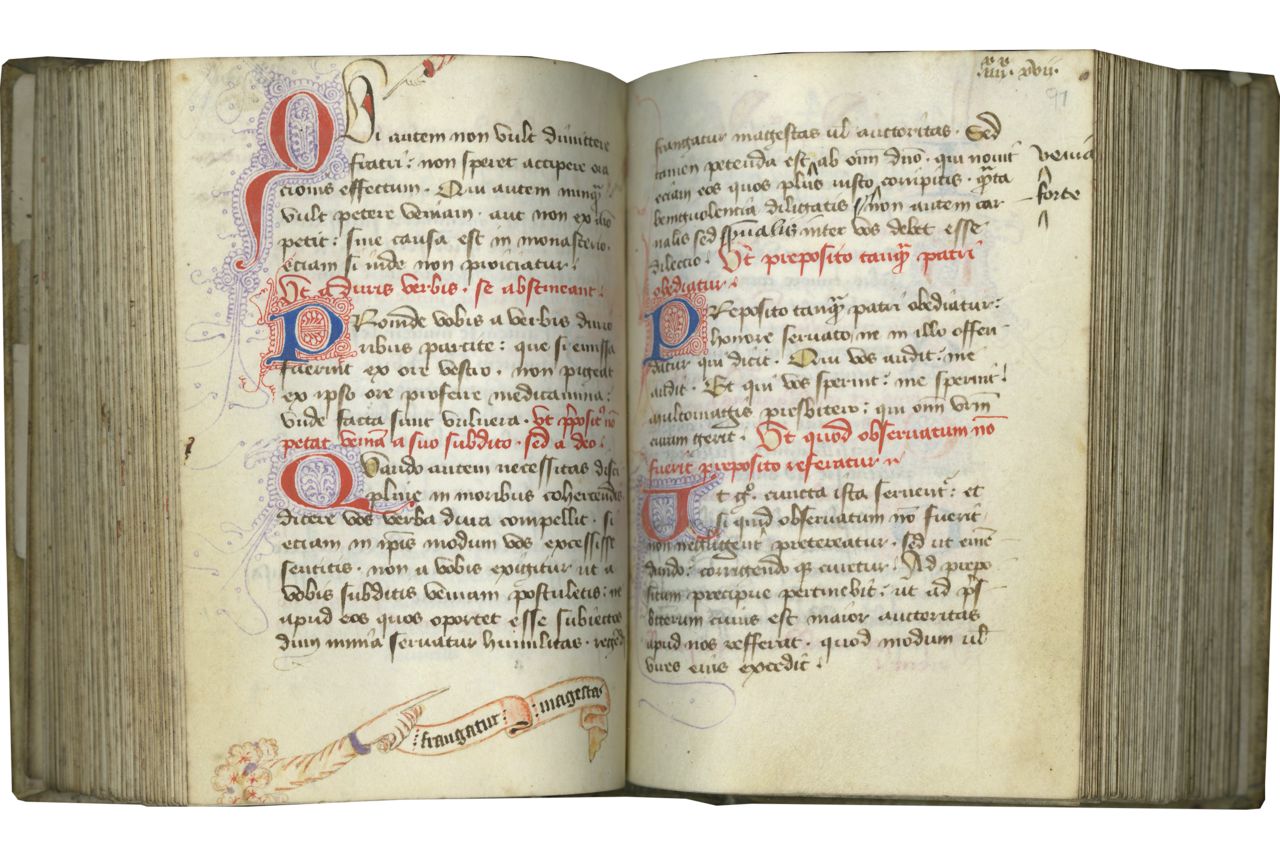 Qui autem non vult dimittere
fratri: non speret accipere ora
cionis effectum. Qui autem nunq̄
vult petere veniam. aut non ex aīo
petit: sine causa est in monasterio.
eciam si inde non proiciatur.
Vt a duris verbis. se abstineant.
PRoinde vobis a verbis duric
ribus parcite: que si emissa
fuerint ex ore vestro. non pigeat
ex ipso ore proferre medicamina:
vnde facta sunt vulnera. vt p̄posit9 nō
petat veniā a suo subdito. sed a deo.
QVando autem necessitas disci
pline in moribus cohercendis
dicere vos verba dura compellit. si
eciam in ip̄is modum vos excessisse
sentitis. non a vobis exigitur ut a
vobis subditis veniam postuletis: ne
apud eos quos oportet esse subiectos
dum nimia servatur humilitas. regēdi
frangatur: magestas
.iiii. xvii.
97
frangatur magestas ul̄ auctoritas. Sed
tamen petenda est ab om̄i dn̄o. qui novit
venia
eciam eos quos pl9 iusto corripitis. q̄nta
benivolencia diligatis non autem car
forte
nalis sed sp̄ualis inter vos debet esse
dilectio. Vt preposito tanq̄ patri
obediatur.
PReposito tanq̄ patri obediatur:
honore servato. ne in illo offen
datur qui dicit. Qui vos audit: me
audit. Et qui vos sperint: me sperint.
multomagis presbitero: qui om̄i vrm̄
curam gerit. Vt quod observatum nō
fuerit preposito referatur
Vt gͦ. cuncta ista serventr̄: et
si quid observatum nō fuerit
non necligent9 pretereatur. sed ut emē
dando: corrigendo q3 curetur. Ad prepo
situm precipue pertinebit: ut ad p̄s
biterum cuius est maior auctoritas
apud nos refferat. quod modum ul̄
vires eius excedit.